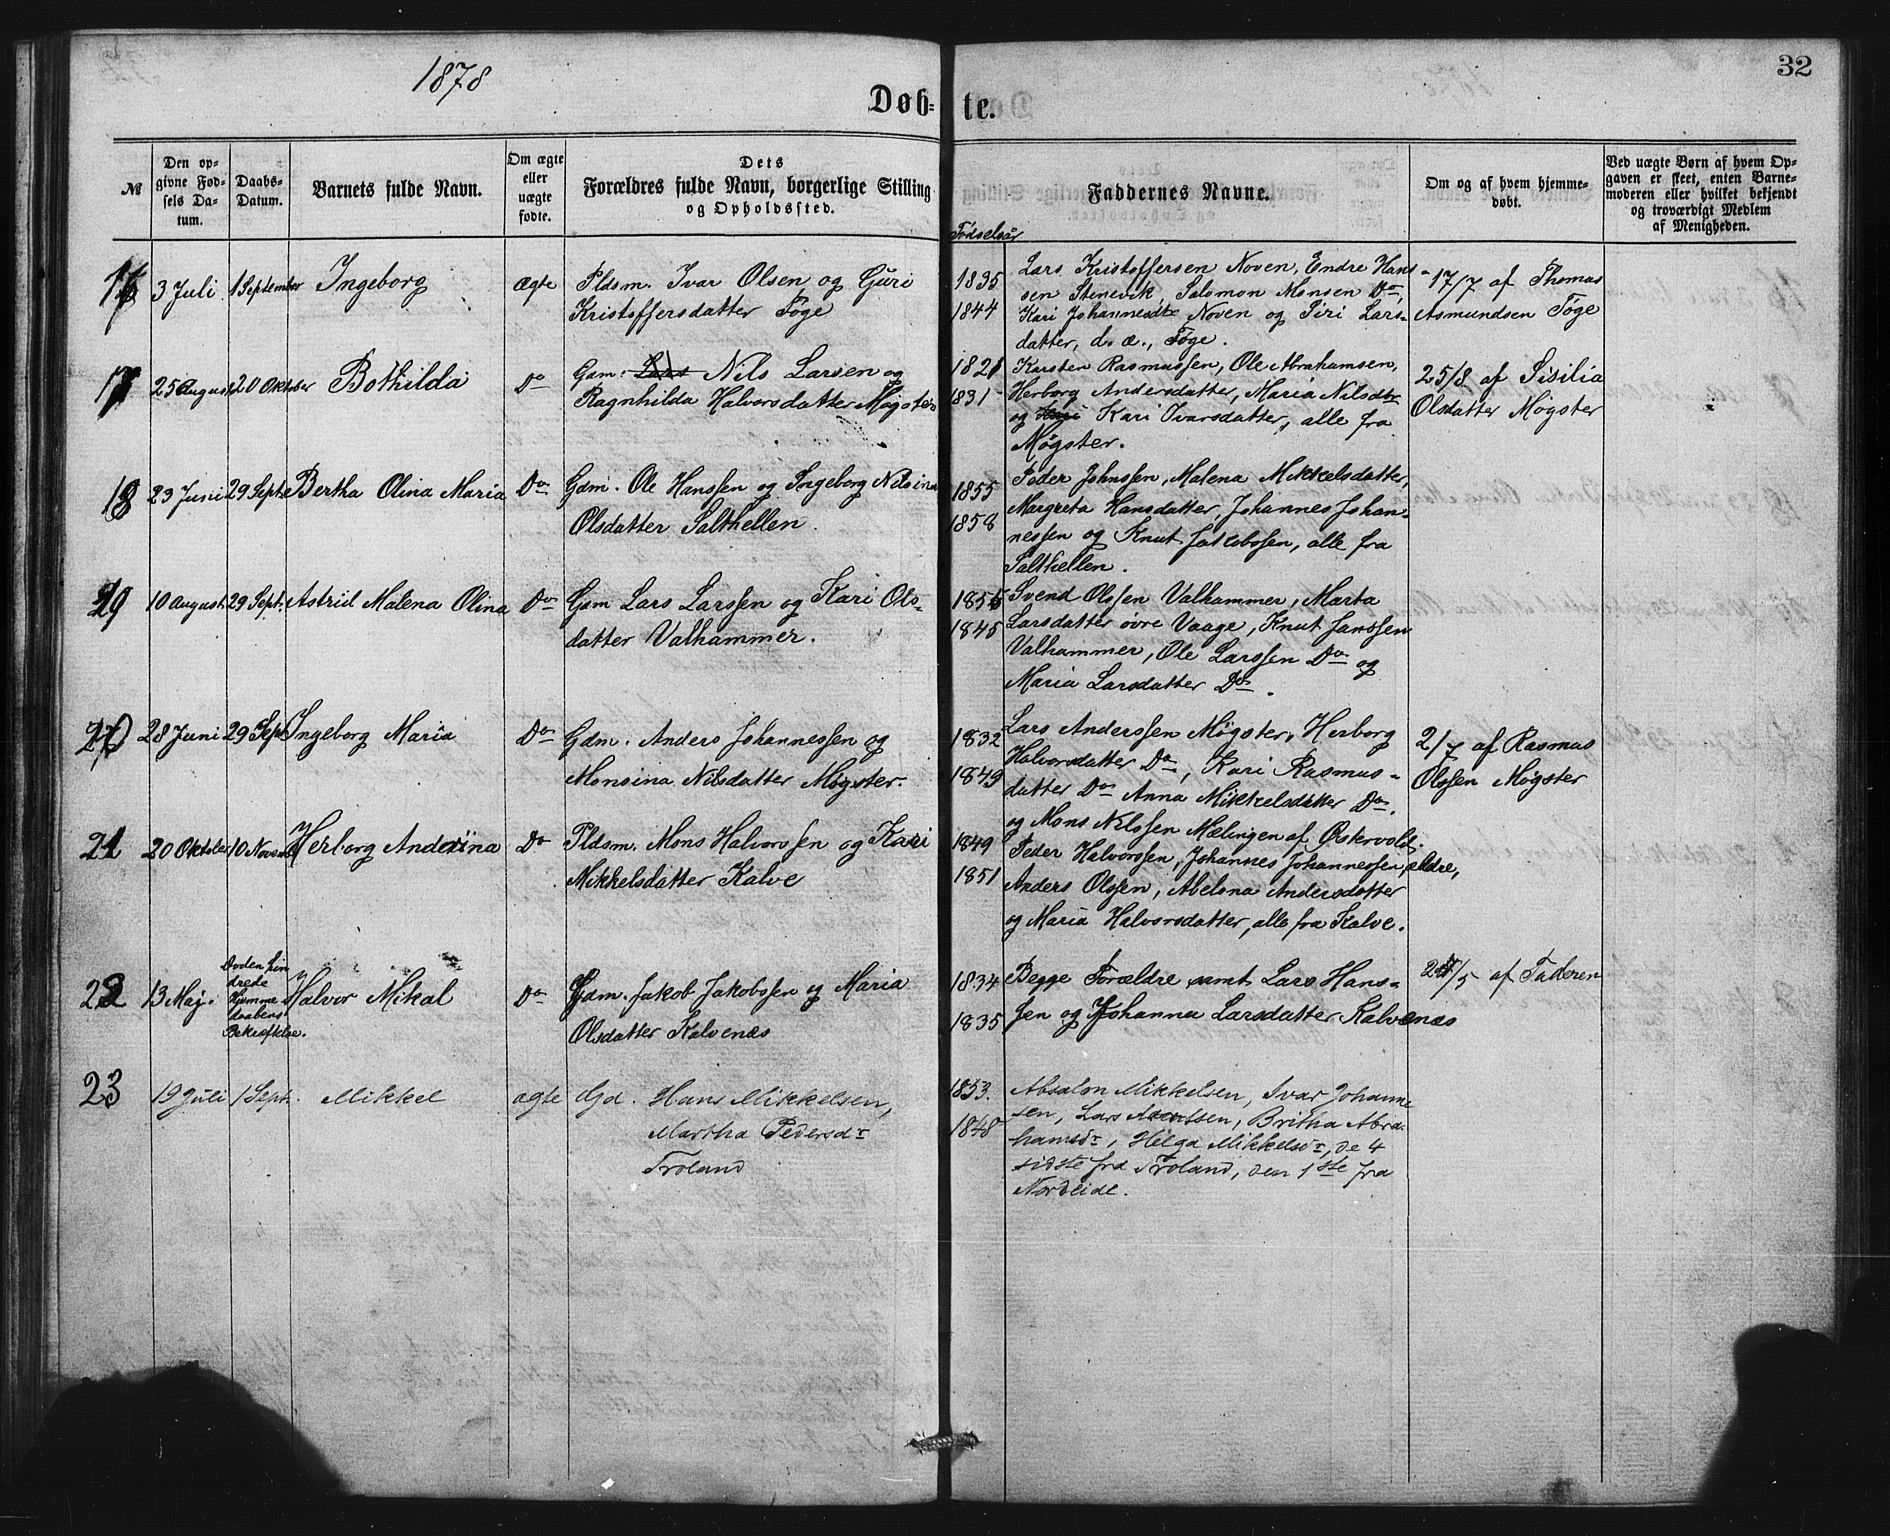 1878
32
Døb-
te.
№
Den op-
givne Fød-
sels Da-
tum.
Daabs-
Datum.
Barnets fulde Navn.
Om ægte
eller
uægte
fødte.
Dets
Forældres fulde Navn, borgerlige Stilling
og Opholdssted.
Fødselsår
Faddernes Navne.
Om og af hvem hjemme-
døbt.
Ved uægte Børn af hvem Op-
gaven er skeet, enten Barne-
moderen eller hvilket bekjendt
og troværdigt Medlem
af Menigheden.
16 3 Juli 1 September Ingeborg ægte
Pldsm. Ivar Olsen og Guri
Kristoffersdatter Toge
1835
1844
Lars Kristoffersen Noven, Endre Han-
sen Stenevik, Salomon Monsen Do,
Kari Johannesdtr Noven og Siri Lars-
datter, d. æ., Toge.
17/7 af Thomas
Asmundsen Toge
17 25 August 20 Oktober Bothilda Do
Gdm. Lars Nils Larsen og
Ragnhilda Halvorsdatter Møgster
1821
1831
Karsten Rasmussen, Ole Abrahamsen,
Herborg Andersdatter, Maria Nilsdtr
og Kari Kari Ivarsdatter, alle fra
Møgster.
25/8 af Sisilia
Olsdatter Møgster
18 23 Juni 29 Septe Bertha Olina Maria Do
Gdm. Ole Hanssen og Ingeborg Nilsina
Olsdatter Salthellen.
1855
1858
Peder Johnssen, Malena Mikkelsdatter,
Margreta Hansdatter, Johannes Johan-
nessen og Knut Jakobssen, alle fra
Salthellen.
19 10 August 29 Sept. Astrid Malena Olina Do
Gdm Lars Larssen og Kari Ols-
datter Valhammer.
1855
1845
Svend Olssen Valhammer, Marta
Larsdatter øvre Vaage, Knut Janssen
Valhammer, Ole Larssen Do og
Maria Larsdatter Do.
20 28 Juni 29 Sept Ingeborg Maria Do
Gdm. Anders Johannessen og
Monsina Nilsdatter Møgster.
1832
1849
Lars Anderssen Møgster, Herborg
Halvorsdatter Do, Kari Rasmus-
datter Do Anna Mikkelsdatter Do,
og Mons Nilssen Mælingen af Østervold.
2/7 af Rasmus
Olssen Møgster
21 20 Oktober 10 Novem Herborg Anderina Do
Pldsm. Mons Halvorssen og Kari
Mikkelsdatter Kalve
1849
1851
Peder Halvorssen, Johannes Johannessen, ældre,
Anders Olssen, Abelona Andersdatter
og Maria Halvorsdatter, alle fra Kalve.
22 13 Maj. Døden hin
drede
Hjemme
daabens
Bekræftelse.
Halvor Mikal Do
Gdm. Jakob Jakobssen og Maria
Olsdatter Kalvenæs
1834
1835
Begge Forældre samt Lars Hans-
sen og Johanna Larsdatter Kalvenæs
/5 af Faderen
23 19 Juli 1 Sept. Mikkel ægte
Gjd. Hans Mikkelsen,
Martha Pedersdr
Troland
1853.
1848
Absalon Mikkelsen, Ivar Johanne
sen, Lars Aarntsen, Britha Abra-
hamsdr, Helga Mikkelsdr, de 4
sidste fra Troland, den 1ste fra
Nordeide.